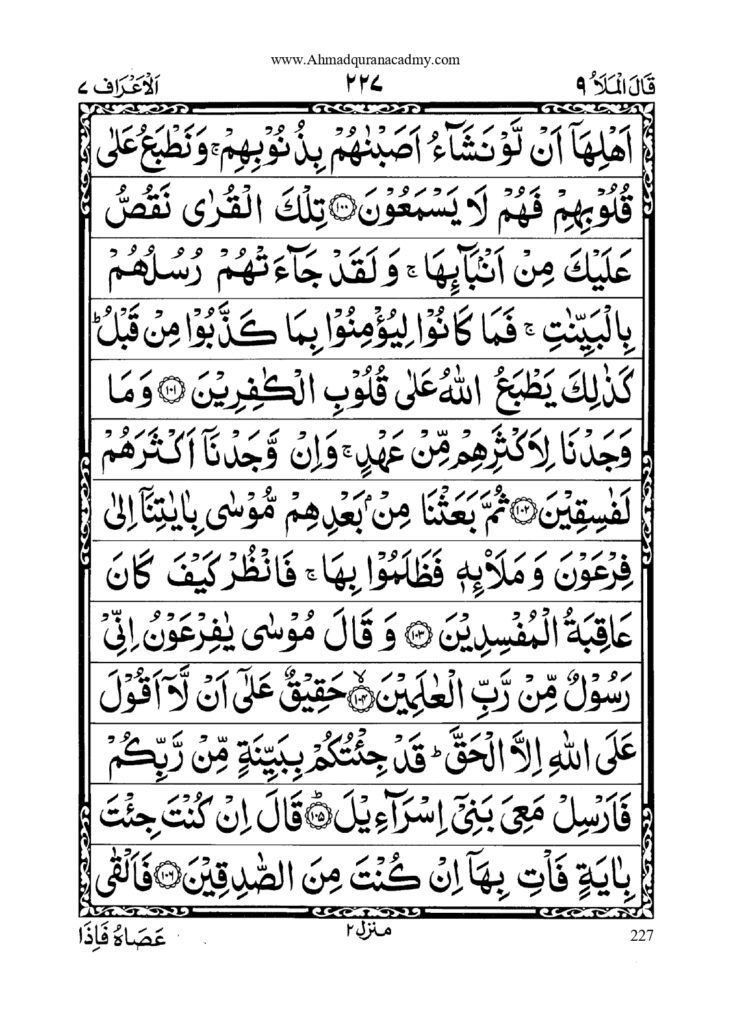 www.Ahmadquranacadmy.com
قَالَ الْمَلَاُ ٩ ٢٢٧ اَلْاَعْرَاف ٧
اَهْلِهَاۤ اَنْ لَّوْ نَشَآءُ اَصَبْنٰهُمْ بِذُنُوْبِهِمْ ۚ وَنَطْبَعُ عَلٰى
قُلُوْبِهِمْ فَهُمْ لَا يَسْمَعُوْنَ ۝١٠٠ تِلْكَ الْقُرٰى نَقُصُّ
عَلَيْكَ مِنْ اَنْۢبَآئِهَا ۚ وَلَقَدْ جَآءَتْهُمْ رُسُلُهُمْ
بِالْبَيِّنٰتِ ۚ فَمَا كَانُوْا لِيُؤْمِنُوْا بِمَا كَذَّبُوْا مِنْ قَبْلُ ؕ
كَذٰلِكَ يَطْبَعُ اللّٰهُ عَلٰى قُلُوْبِ الْكٰفِرِيْنَ ۝١٠١ وَمَا
وَجَدْنَا لِاَكْثَرِهِمْ مِّنْ عَهْدٍ ۚ وَاِنْ وَّجَدْنَاۤ اَكْثَرَهُمْ
لَفٰسِقِيْنَ ۝١٠٢ ثُمَّ بَعَثْنَا مِنْۢ بَعْدِهِمْ مُّوْسٰى بِاٰيٰتِنَاۤ اِلٰى
فِرْعَوْنَ وَمَلَا۟ئِهٖ فَظَلَمُوْا بِهَا ۚ فَانْظُرْ كَيْفَ كَانَ
عَاقِبَةُ الْمُفْسِدِيْنَ ۝١٠٣ وَقَالَ مُوْسٰى يٰفِرْعَوْنُ اِنِّىْ
رَسُوْلٌ مِّنْ رَّبِّ الْعٰلَمِيْنَ ۙ۝١٠٤ حَقِيْقٌ عَلٰٓى اَنْ لَّاۤ اَقُوْلَ
عَلَى اللّٰهِ اِلَّا الْحَقَّ ؕ قَدْ جِئْتُكُمْ بِبَيِّنَةٍ مِّنْ رَّبِّكُمْ
فَاَرْسِلْ مَعِىَ بَنِىْۤ اِسْرَآءِيْلَ ؕ۝١٠٥ قَالَ اِنْ كُنْتَ جِئْتَ
بِاٰيَةٍ فَاْتِ بِهَاۤ اِنْ كُنْتَ مِنَ الصّٰدِقِيْنَ ۝١٠٦ فَاَلْقٰى
عَصَاهُ فَاِذَا منزل ٢ 227